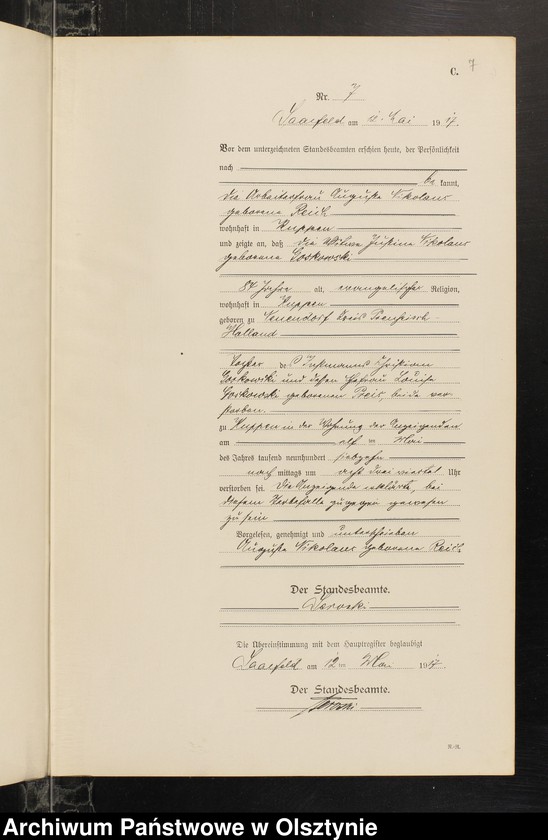 C. 7
Nr. 7
Saalfeld am 12. Mai 1917.
Vor dem unterzeichneten Standesbeamten erschien heute, der Persönlichkeit
nach
be kannt,
die Arbeiterfrau Auguste Nikolaus
geborene Reich
wohnhaft in Kuppen
und zeigte an, daß die Witwe Justine Nikolaus
geborene Goskowski
84 Jahre alt, evangelischer Religion,
wohnhaft in Kuppen
geboren zu Neuendorf Kreis Preußisch-
Holland
Tochter des Instmanns Christian
Goskowski und dessen Ehefrau Louise
Goskowski geborenen Preis, beide ver-
storben.
zu Kuppen in der Wohnung der Anzeigenden
am elf ten Mai
des Jahres tausend neunhundert siebzehn
nach mittags um acht drei viertel Uhr
verstorben sei. Die Anzeigende erklärte, bei
diesem Sterbefalle zugegen gewesen
zu sein
Vorgelesen, genehmigt und unterschrieben
Auguste Nikolaus geborene Reich
Der Standesbeamte.
Die Übereinstimmung mit dem Hauptregister beglaubigt
Saalfeld am 12ten Mai 1917.
Der Standesbeamte.
Archiwum Państwowe w Olsztynie